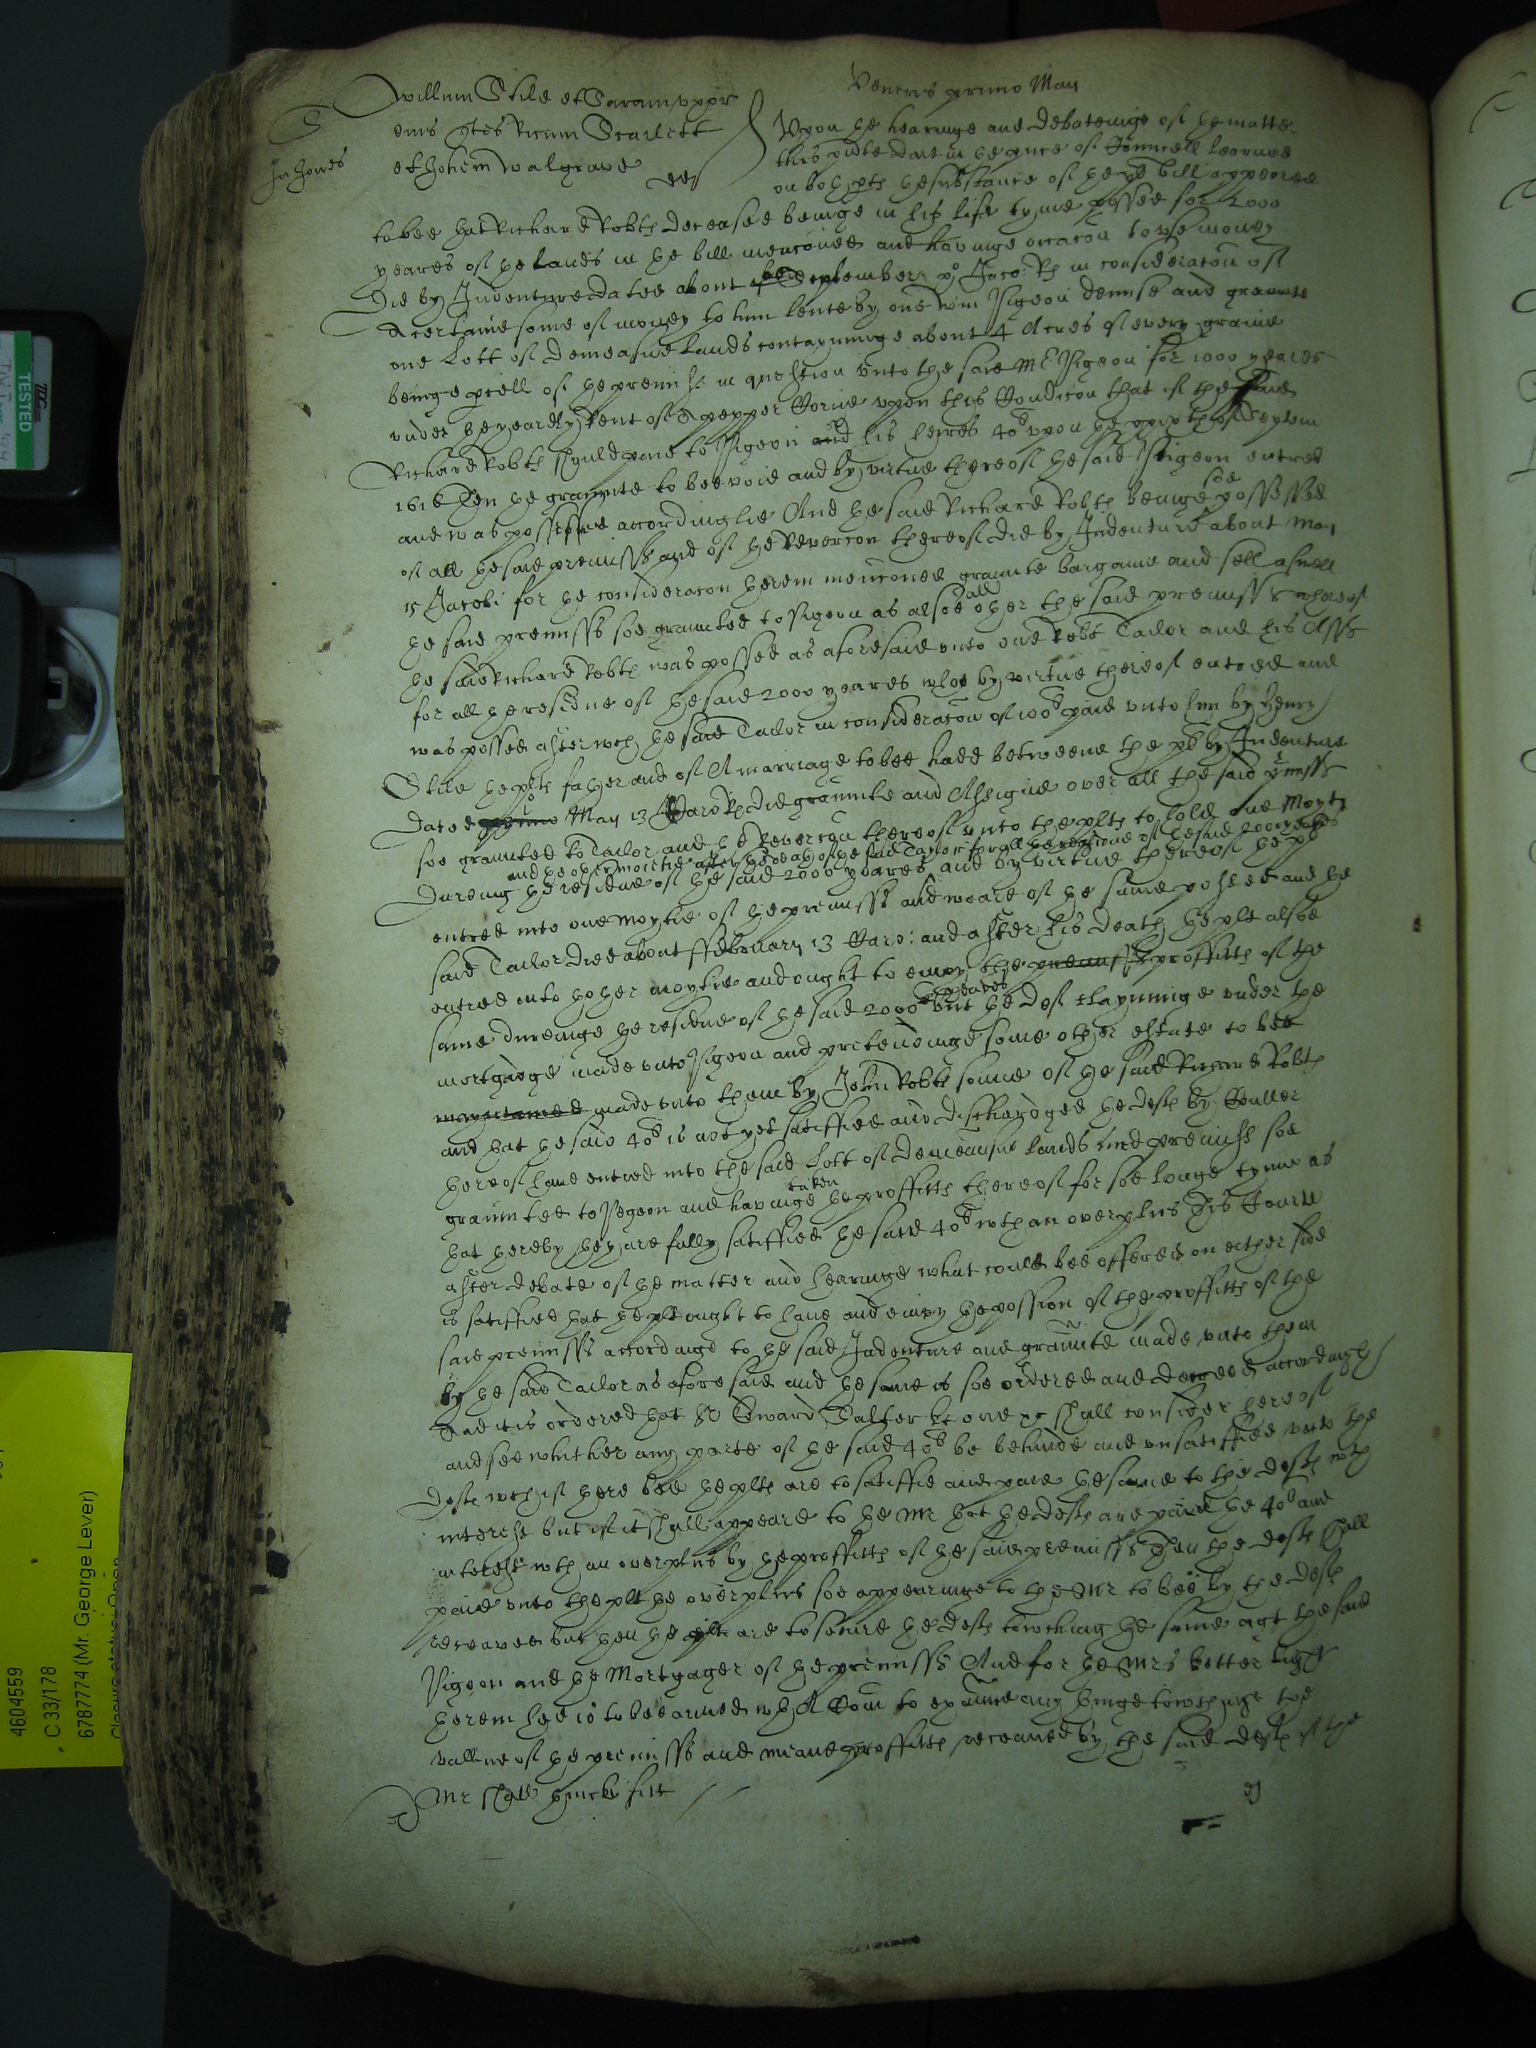 Veneris primo Maij
S
Jn Jones
Willum Stile et Saram uxor
eius quer Ricum Scarlett
et Johem Walgrave
def
Upon the hearinge and debateinge of the matter
this pnte daie in the pnce of Councell learned
on both pts the substance of the pl bill appeared
to bee that Richard Robts deceased beinge in his life tyme possed for 2000
yeares of the lands in the bill menconed and havinge occacon to use money
Did by Indenture dated about September po Jaco: Rs in consideracon of
a certaine some of money to him lente by one Wm Pigeon demise and graunte
one Lott of demeasne lands contayninge about 4 Acres of every graine
beinge pcell of the premisss in question unto the said Mr Pigeon for 1000 yeares
under the yearely rent of a pepper Corne upon this Condicon that if the said
Richard Robts should paie to Pigeon and his heires 40l upon the of Septem
1616 Then the graunte to bee void and by virtue thereof the said Pigeon entred
and was possessed accordinglie And the said Richard Robts beinge soe possessed
of all the said premisses and of the Revercon thereof did by Indenture about May
15 Jacobi for the consideracon therein menconed graunte bargaine and sell aswell
the said premisses soe graunted to Pigeon as alsoe all other the said premisses whereof
the said Richard Robts was possed as aforesaid unto one Robt Tailor and his Asss
for all the residue of the said 2000 yeares whoe by virtue thereof entred and
was possed after wch the said Tailor in consideracon of 100l paid unto him by Henry
Stile the plts father and of A marriage to bee hadd betweene the pls by Indenture
dated primo May 13 Caro Rs did graunte and Assigne over all the said pmisses
soe graunted to Tailor and the Revercon thereof unto the plts to hold one Moyty
and the other moitie after the death of the said Taylor for all the residue of the said 2000 yeares
Dureing the residue of the said 2000 yeares and by virtue thereof the pls
entred into one Moytie of the premisses and weare of the same possed and the
said Tailor died about ffebruary 13 Caro: and after his death the plts alsoe
entred into thother moytie and ought to enioy the premisss proffitts of the
same dureinge the residue of the said 2000 yeares but the defts clayminge under the
mortgage made unto Pigeon and pretendinge some other estate to bee
made unto them by John Robts sonne of the said Richard Robts
and that the said 40l is not yet satisfied and discharged the defts by Couller
thereof have entred into the said Lott of demeasne lands and premisss soe
graunted to Pigeon and havinge taken the proffitts thereof for soe longe tyme as
that thereby they are fully satisfied the said 40l wth an overplus This Court
after debate of the matter and hearinge what could bee offered on either side
is satisfied that the plts ought to have and enioy the possion of the proffitts of the
said premisses accordinge to the said Indenture and graunte made unto them
by the said Tailor as aforesaid and the same is soe ordered and decreed accordingly
And it is ordered that Sr Edward Salter kt one &c shall consider hereof
and see whither any parte of the said 40l be behinde and unsatisfied unto the
defts wch if there bee the plts are to satisfie and paie the same to the defts wth
interest but if it shall appeare to the Mr that the defts are paid the 40l and
interest wth an overplus by the proffitts of the said premisses Then the defts shall
paie unto the plts the overplus soe appearinge to the Mr to bee by the defts
receaved but then the plts are to secure the defts towching the same agt the said
Pigeon and the Mortgager of the premisses And for the Mrs better
therein hee is to bee armed wth A Com to exaine any thinge towchinge the
vallue of the premisses and meane proffitts receaved by the said defts if the
Mr shall thincke fitt
TESTED
4604559
C 33/178
6787774 (Mr. George Lever)